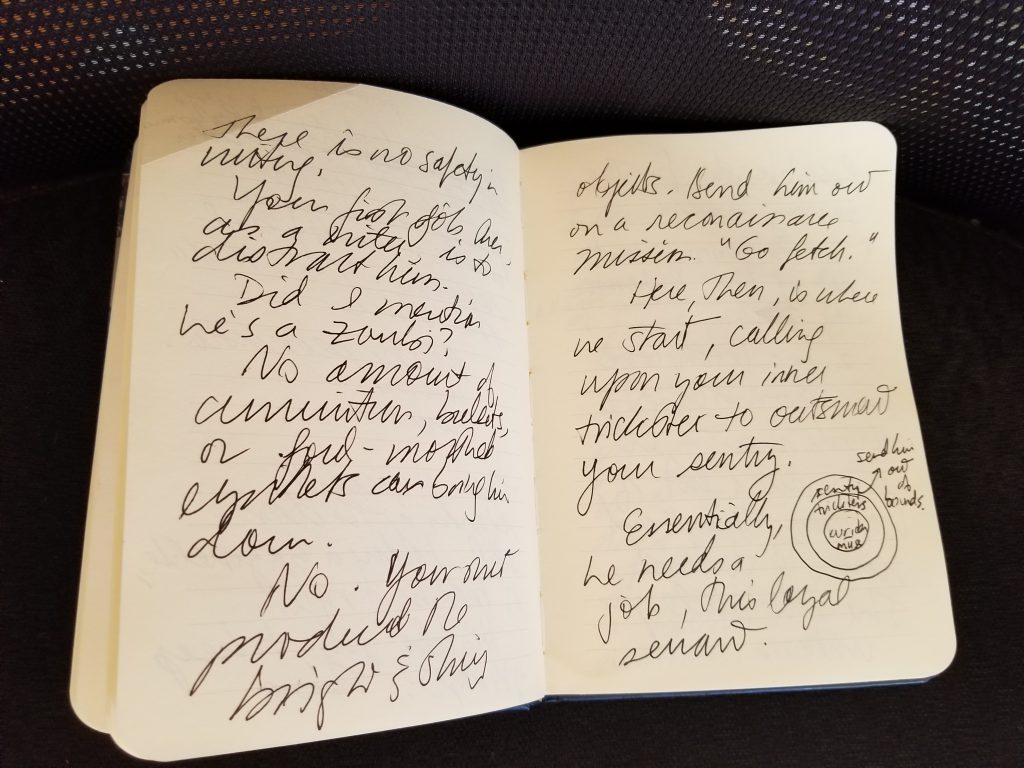 There is no safety in
writing.
Your first job, then,
as a writer is to
distract him.
Did I mention
he's a zombi?
No amount of
ammunition, bullets,
or foul-mouthed
epithets can bring him
down.
No. You must
produce the
bright & shiny
objects. Send him out
on a reconaissance
mission. "Go fetch."
Here, then, is where
we start, calling
upon your inner
trickster to outsmart
your sentry.
Essentially,
he needs a
job, this loyal
servant.
send him
out of
bounds.
sentry
trickster
writer